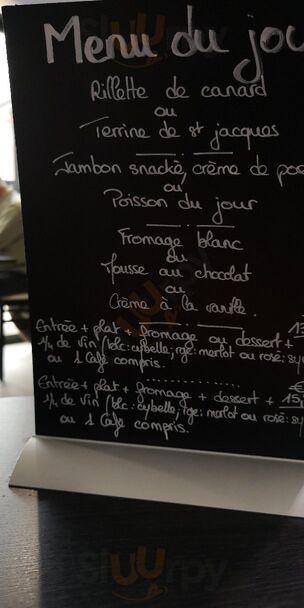 Menu du jou
Rillette de canard
ou
Terrine de st jacques
Jambon snacké, crème de poe
ou
Poisson du jour
Fromage blanc
ou
Mousse au chocolat
ou
Crème à la vanille.
Entrée + plat + fromage ou dessert +
1/4 de vin (blc: cybelle; rge: merlot ou rosé: sy
ou 1 Café compris.
Entrée + plat + fromage + dessert + 15,
1/4 de vin (blc: cybelle; rge: merlot ou rosé: sy
ou 1 Café compris.
sluurpy